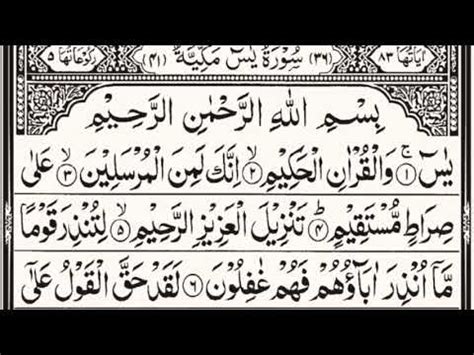 اٰيَاتُهَا ٨٣ (٣٦) سُوْرَةُ يٰسٓ مَكِّيَّةٌ (٤١) رُكُوْعَاتُهَا ٥
بِسْمِ اللهِ الرَّحْمٰنِ الرَّحِيْمِ
يٰسٓ ۚ﴿١﴾ وَالْقُرْاٰنِ الْحَكِيْمِ ۙ﴿٢﴾ اِنَّكَ لَمِنَ الْمُرْسَلِيْنَ ۙ﴿٣﴾ عَلٰى
صِرَاطٍ مُّسْتَقِيْمٍ ؕ﴿٤﴾ تَنْزِيْلَ الْعَزِيْزِ الرَّحِيْمِ ۙ﴿٥﴾ لِتُنْذِرَ قَوْمًا
مَّاۤ اُنْذِرَ اٰبَآؤُهُمْ فَهُمْ غٰفِلُوْنَ ﴿٦﴾ لَقَدْ حَقَّ الْقَوْلُ عَلٰۤى